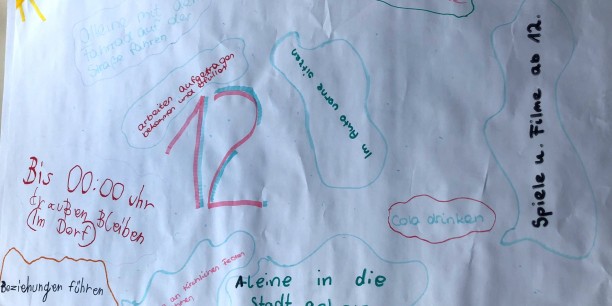 Alleine mit dem
Fahrrad auf der
Straße fahren
arbeiten aufgetragen
bekommen und
12
im Auto vorne sitzen
Spiele u. Filme ab 12.
Bis 00:00 uhr
draußen Bleiben
(im Dorf)
Cola drinken
Beziehungen führen
an kirchlichen
Aleine in die
Stadt